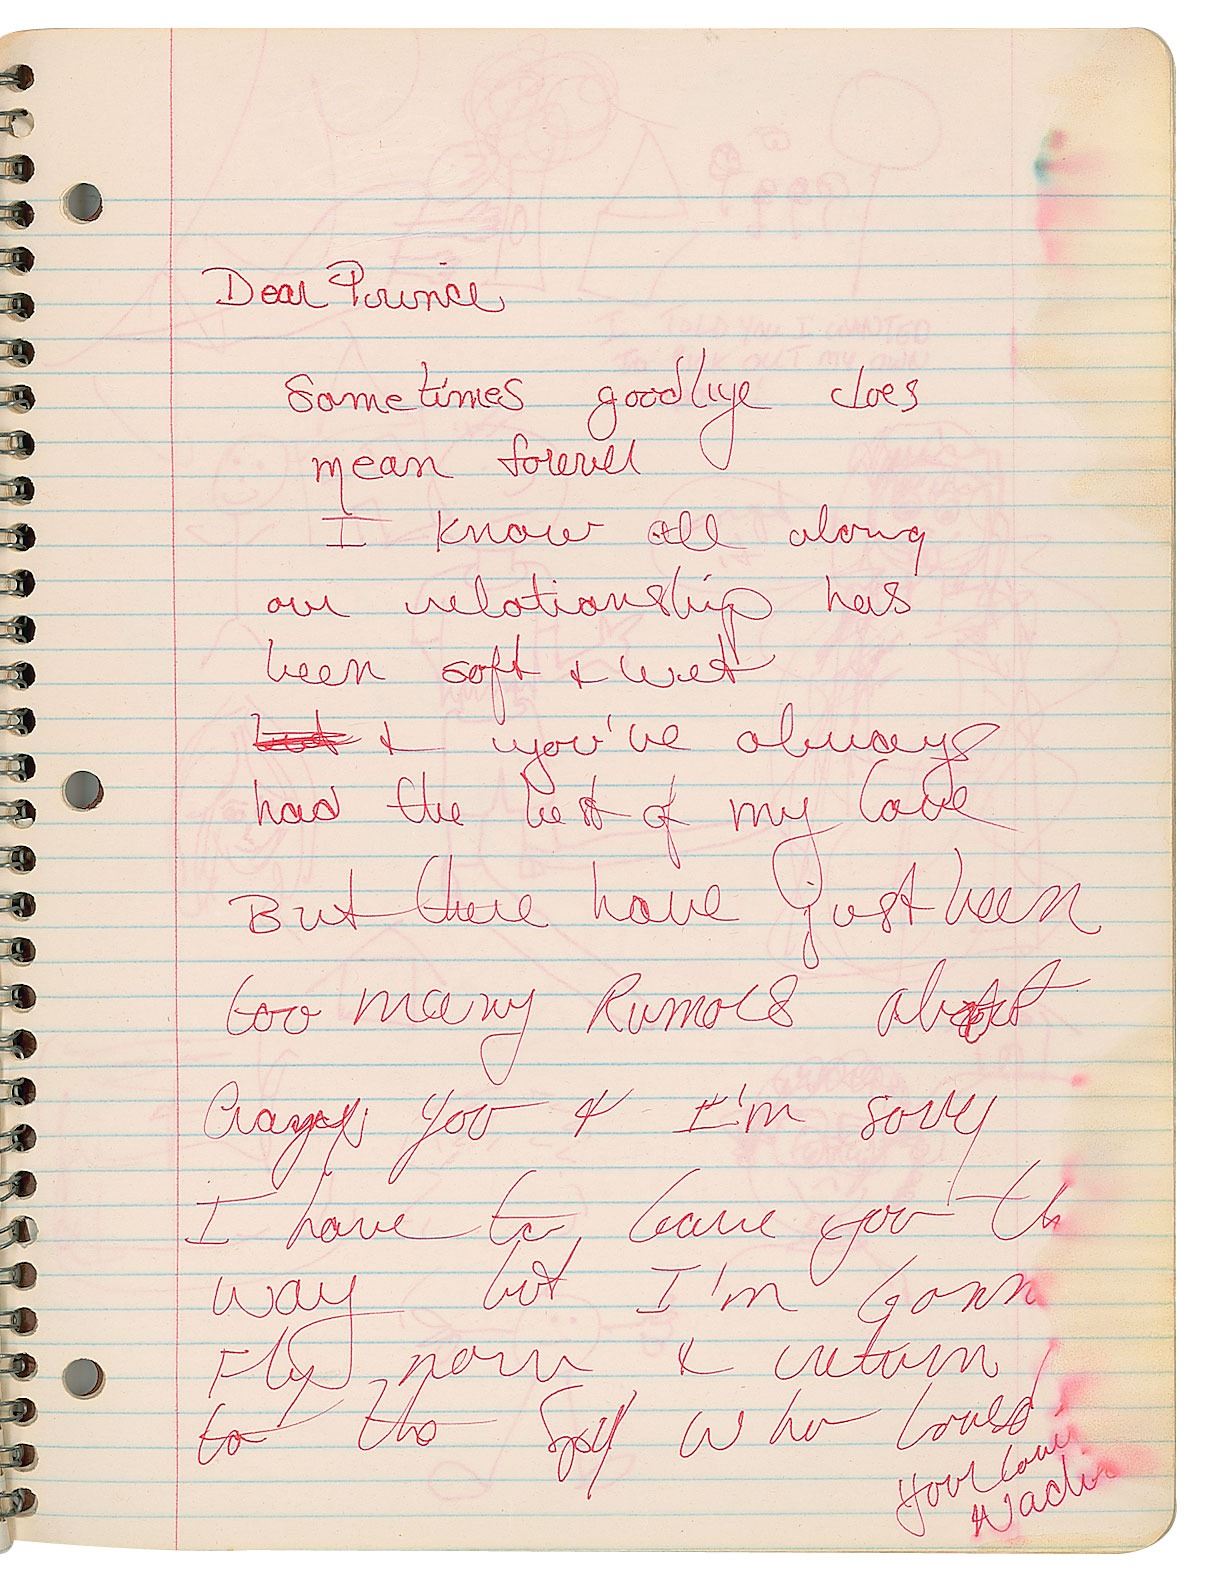 Dear Prince
Sometimes goodbye does
mean forever
I know all along
our relationship has
been soft & wet
but & you've always
had the best of my love
But there have just been
too many Rumors about
you & I'm sorry
I have to leave you th
way but I'm Gonn
Fly now & return
to the Spy who loved
Your love
I TOLD YOU I WANTED
MY OWN